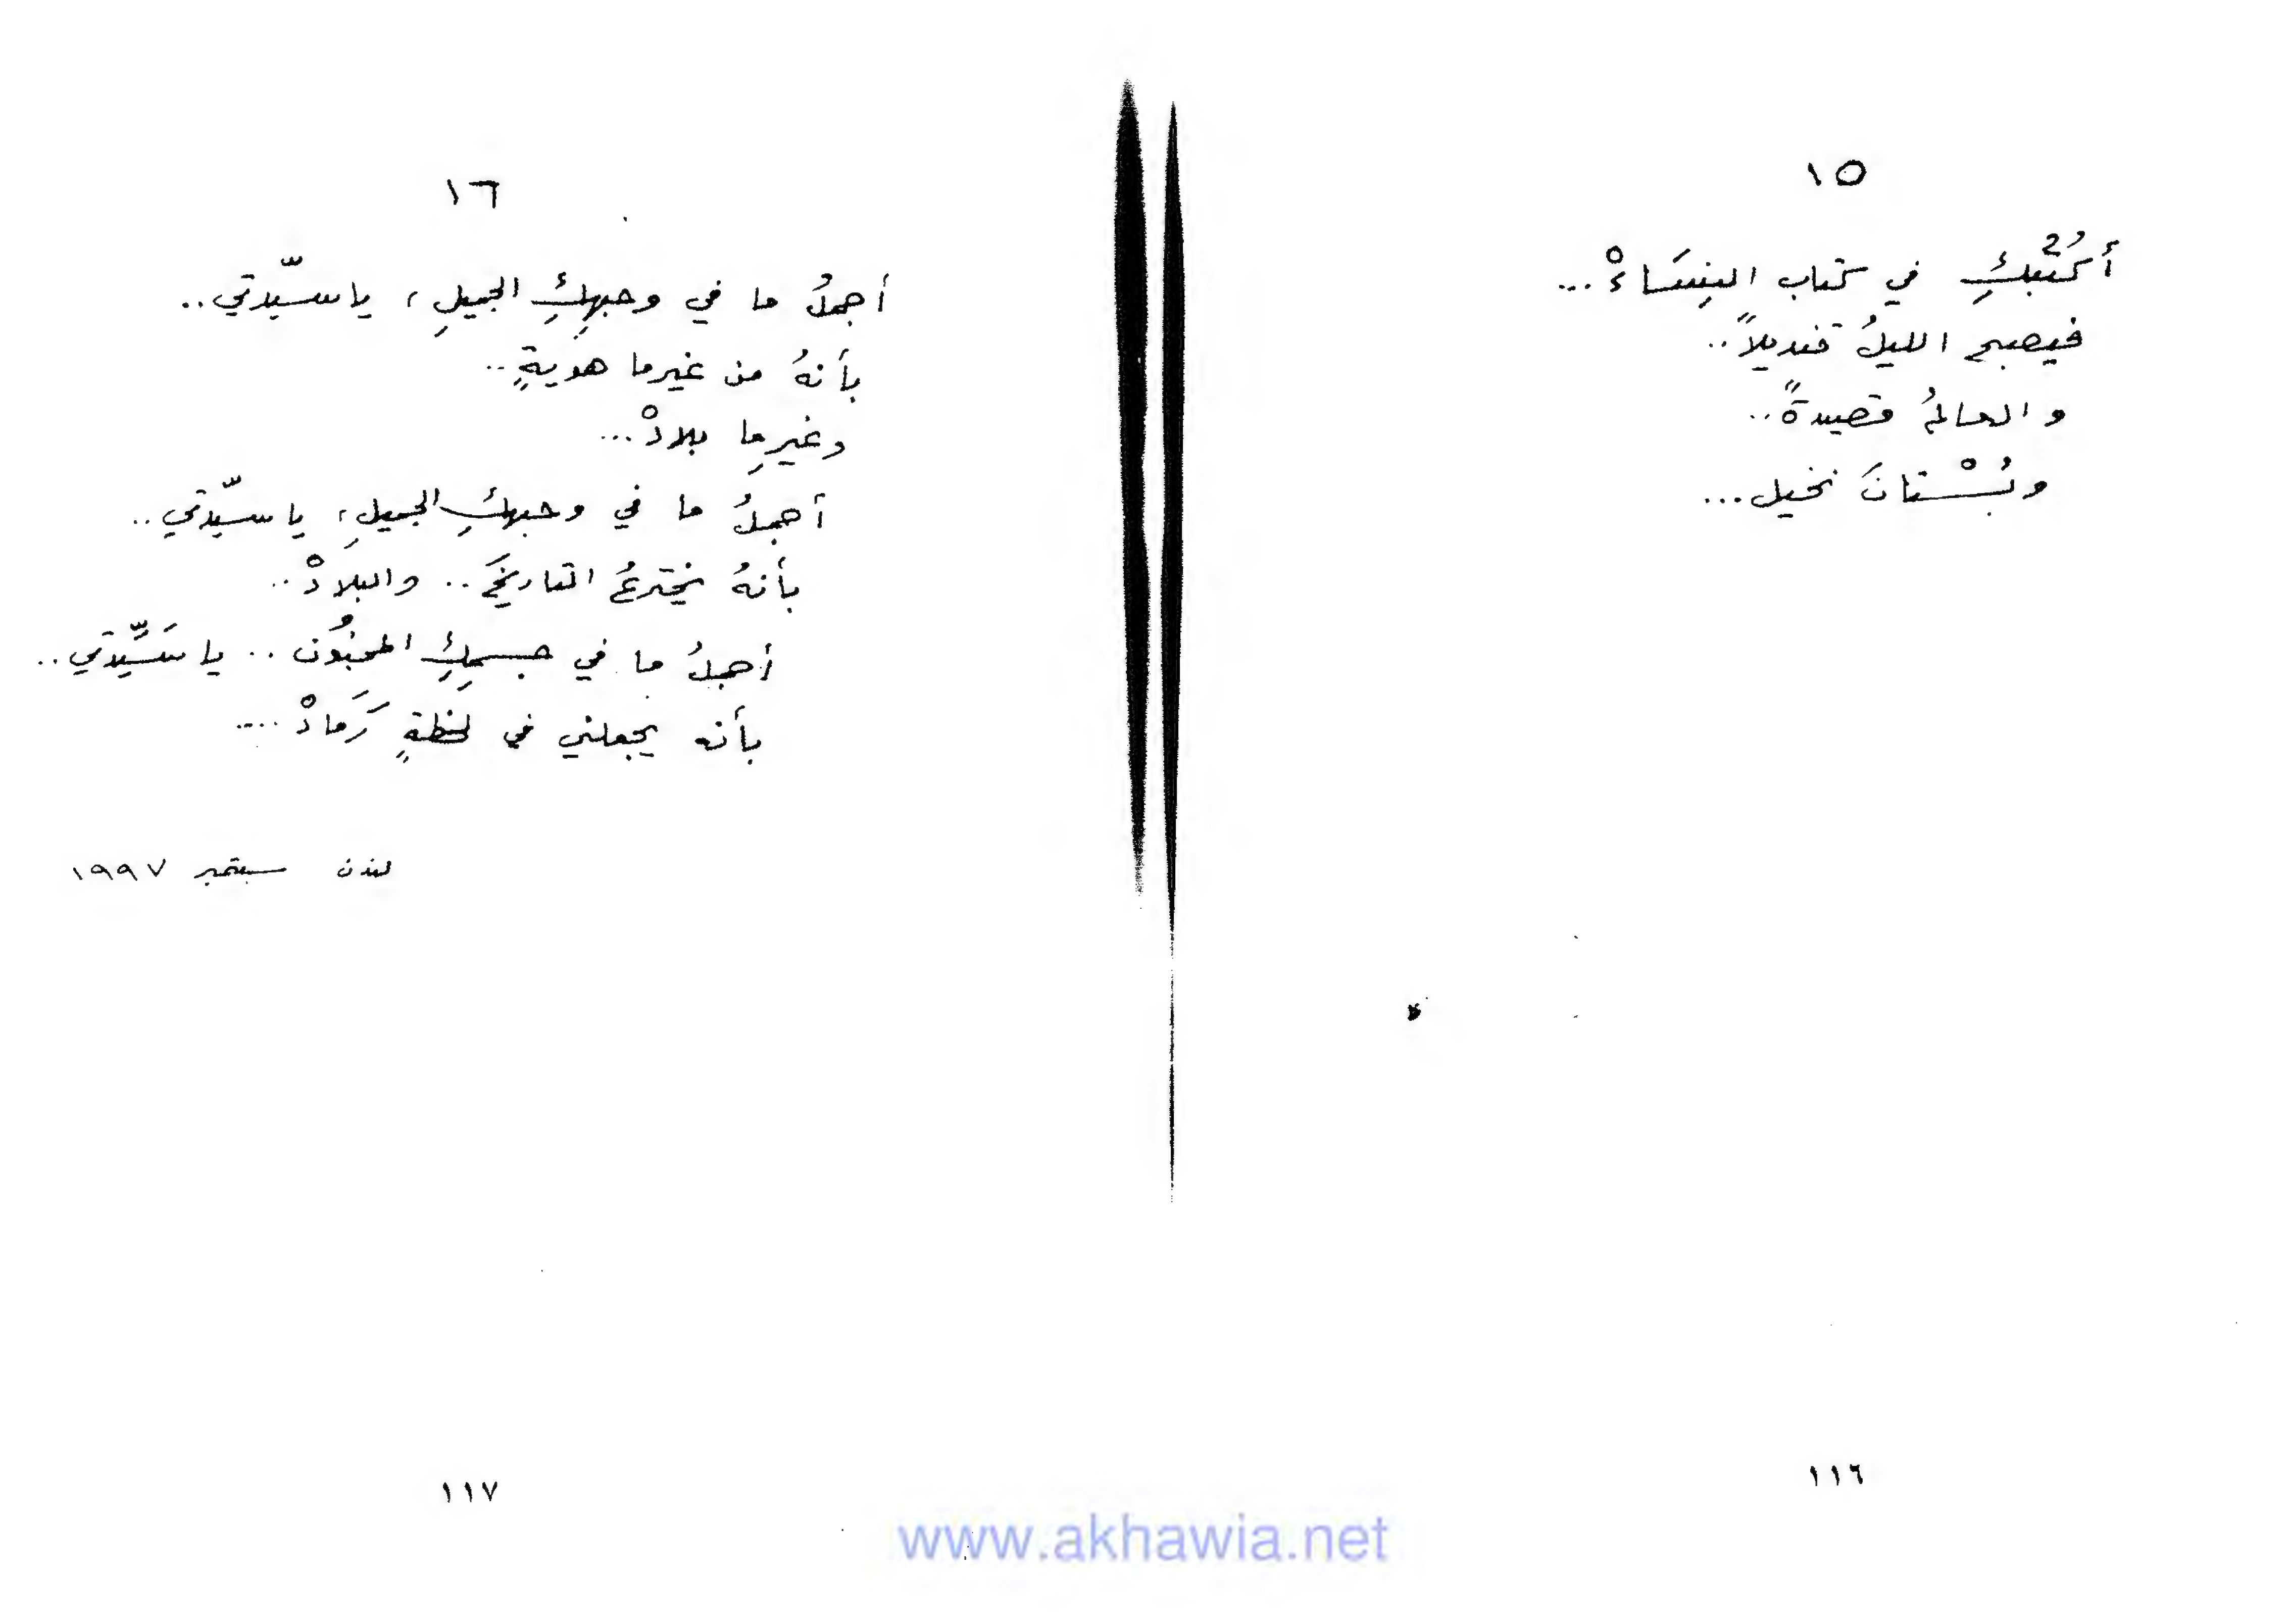 ١٥
أكْتُبُكِ في كتاب النِسَاءْ...
فيصبح الليلُ قنديلاً..
والعالمُ قصيدةً..
وبُسْتانَ نخيل...
١١٦
١٦
أجملُ ما في وجهِكِ الجميلِ، يا سيّدتي..
بأنهُ من غيرما هويةٍ..
وغيرِما بلادْ...
أجملُ ما في وجهكِ الجميلِ، يا سيّدتي..
بأنهُ يخترعُ التاريخَ.. والبلادْ..
أجملُ ما في جسمِكِ المجنُون.. يا سَيِّدتي..
بأنه يجعلني في لحظةٍ رَمَادْ....
لندن سبتمبر ١٩٩٧
١١٧
www.akhawia.net